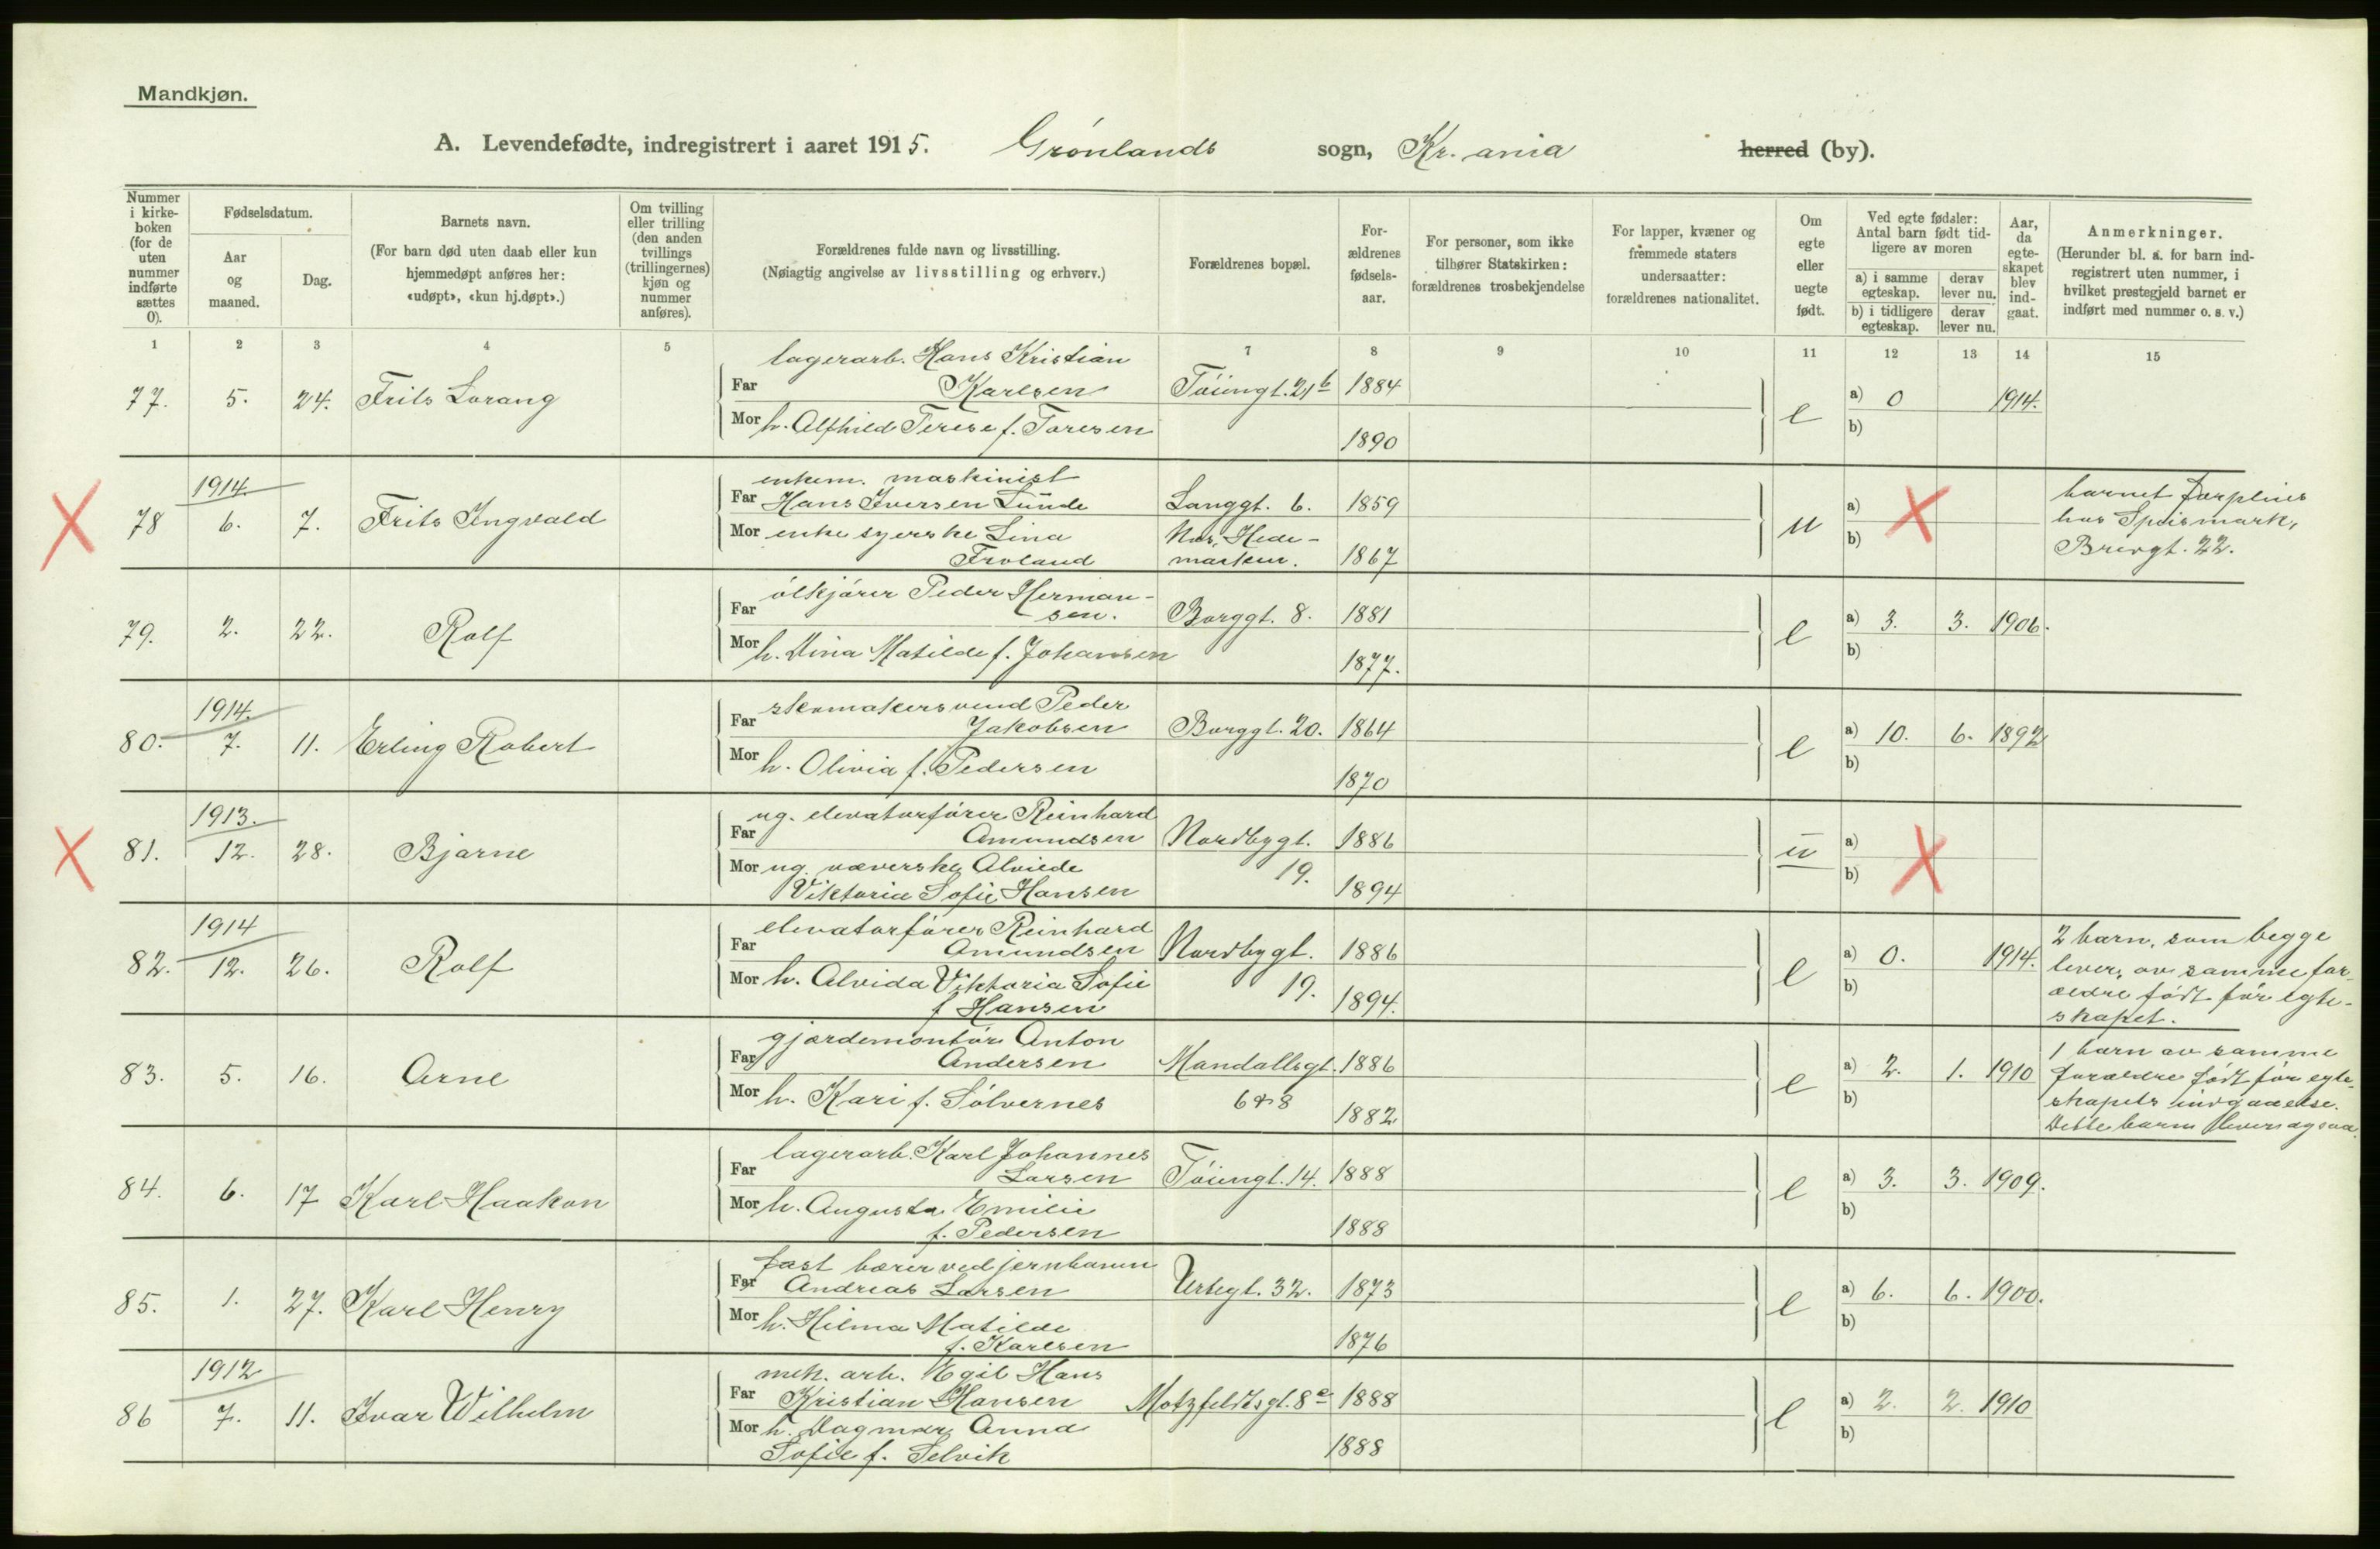 Mandkjøn.
A. Levendefødte, indregistrert i aaret 1915. Grønlands sogn, Kr.ania herred (by).
Nummer i kirke-boken (for de uten nummer indførte sættes 0).
Fødselsdatum.
Aar og maaned.
Dag.
Barnets navn.
(For barn død uten daab eller kun hjemmedøpt anføres her: «udøpt», «kun hj.døpt».)
Om tvilling eller trilling (den anden tvillings (trillingernes) kjøn og nummer anføres).
Forældrenes fulde navn og livsstilling.
(Nøiagtig angivelse av livsstilling og erhverv.)
Forældrenes bopæl.
For-ældrenes fødsels-aar.
For personer, som ikke tilhører Statskirken: forældrenes trosbekjendelse
For lapper, kvæner og fremmede staters undersaatter: forældrenes nationalitet.
Om egte eller uegte født.
Ved egte fødsler: Antal barn født tid-ligere av moren
a) i samme egteskap. derav lever nu.
b) i tidligere egteskap. derav lever nu.
Aar, da egte-skapet blev ind-gaat.
Anmerkninger.
(Herunder bl. a. for barn ind-registrert uten nummer, i hvilket prestegjeld barnet er indført med nummer o. s. v.)
1 2 3 4 5 7 8 9 10 11 12 13 14 15
lagerarb. Hans Kristian
77. 5. 24. Frits Lorang Far Karlsen Töiengt. 21b 1884 e a) 0 1914.
Mor h. Alfhild Terese f. Toresen 1890 b)
1914. enkem. maskinist
78 6. 7. Frits Ingvald Far Hans Iversen Lunde Langgt. 6. 1859 u a)
Mor enke syerske Lina Nes, Hede-
Froland marken. 1867 b)
barnet forpleies
hos Speismark,
Breigt. 22.
ölkjörer Peder Herman-
79. 2. 22. Rolf Far sen. Borggt. 8. 1881 e a) 3. 3. 1906.
Mor h. Dina Matilde f. Johansen 1877. b)
1914. skomakersvend Peder
80. 7. 11. Erling Robert Far Jakobsen Borggt. 20. 1864 e a) 10. 6. 1892
Mor h. Olivia f. Pedersen 1870 b)
1913. ug. elevatorförer Reinhard
81. 12. 28. Bjarne Far Amundsen Nordbygt. 1886 u a)
Mor ug. væverske Alvilde 19.
Viktoria Sofie Hansen 1894 b)
1914 elevatorförer Reinhard
82. 12. 26. Rolf Far Amundsen Nordbygt. 1886 e a) 0. 1914.
Mor h. Alvida Viktoria Sofie 19.
f Hansen 1894. b)
2 barn, som begge
lever, av samme for-
ældre födt för egte-
skapet.
gjørdemontör Anton
83. 5. 16. Arne Far Andersen Mandallsgt. 1886 e a) 2. 1. 1910
Mor h. Kari f. Sölvernes 6 & 8 1882 b)
1 barn av samme
forældre födt för egte-
skapets indgaaelse.
Dette barn lever ogsaa.
lagerarb. Karl Johannes
84. 6. 17 Karl Haakon Far Larsen Töiengt. 14. 1888 e a) 3. 3. 1909.
Mor h. Augusta Emilie
f. Pedersen 1888 b)
fast bærer ved jernbanen
85. 1. 27. Karl Henry Far Andreas Larsen Urtegt. 32. 1873 e a) 6. 6. 1900.
Mor h. Hilma Matilde
f. Karlsen 1876 b)
1912 mek. arb. Egil Hans
86 7. 11. Ivar Wilhelm Far Kristian Hansen Motzfeldtsgt. 8c 1888 e a) 2. 2. 1910
Mor h. Dagmar Anna
Sofie f. Selvik 1888 b)